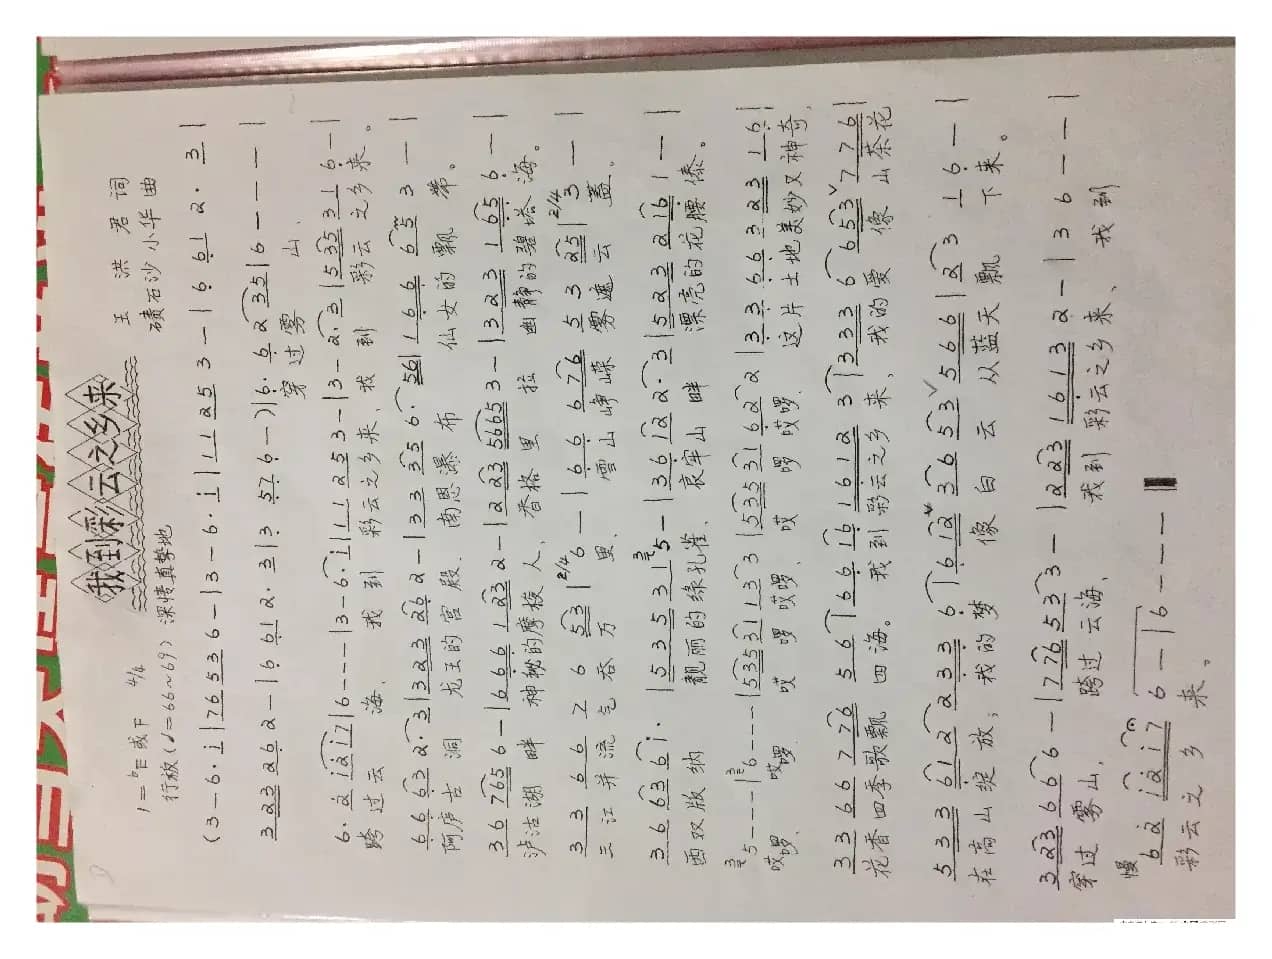 我到彩云之乡来
1=♭E或F 4/4
王洪君 词
行板(♩=66~69) 深情真挚地
碛石沙小华 曲
(3-6·i|765 36-|3-6·i|11253-|6 61 2·3|
323262-|6 61 2·3|3·576-)|6·6235|6---|
穿过雾山、
6·2i2i7|6---|3-6·i|11253-|3-2·3|535316-|
跨过云海、我到彩云之乡来、我到彩云之乡来。
6663 2·3|323262-|33356·56|166653-|
阿庐古洞 龙王的宫殿、南恩瀑布 仙女的飘带。
36765 6-|666 1232-|223566 53-|3231656-|
泸沽湖畔 神秘的摩梭人、香格里拉 幽静的碧塔海。
3366 2653|2/4 6-|66676 5325|2/4 3-|
三江并流气吞万里、雪山峥嵘雾遮云盖、
366366i·|53553 5-|36122·3|5323216 1-|
西双版纳 靓丽的绿孔雀、哀牢山畔 漂亮的花腰傣。
5---|6---|53531133|53531622|33663231 6|
哎啰、哎啰、哎啰哎啰、哎啰哎啰、这片土地美妙又神奇、
3366776 556|66161612 3|333 6653 776|
花香四季歌飘四海。我到彩云之乡来、我的爱像山茶花
53336122333 6|612 3653 566|23 16-|
在高山绽放；我的梦像白云从蓝天飘下来。
323666-|7765333-|223 16132-|36--|
穿过雾山、跨过云海、我到彩云之乡来、我到
慢
62i2i7 6-|6---
彩云之乡来。